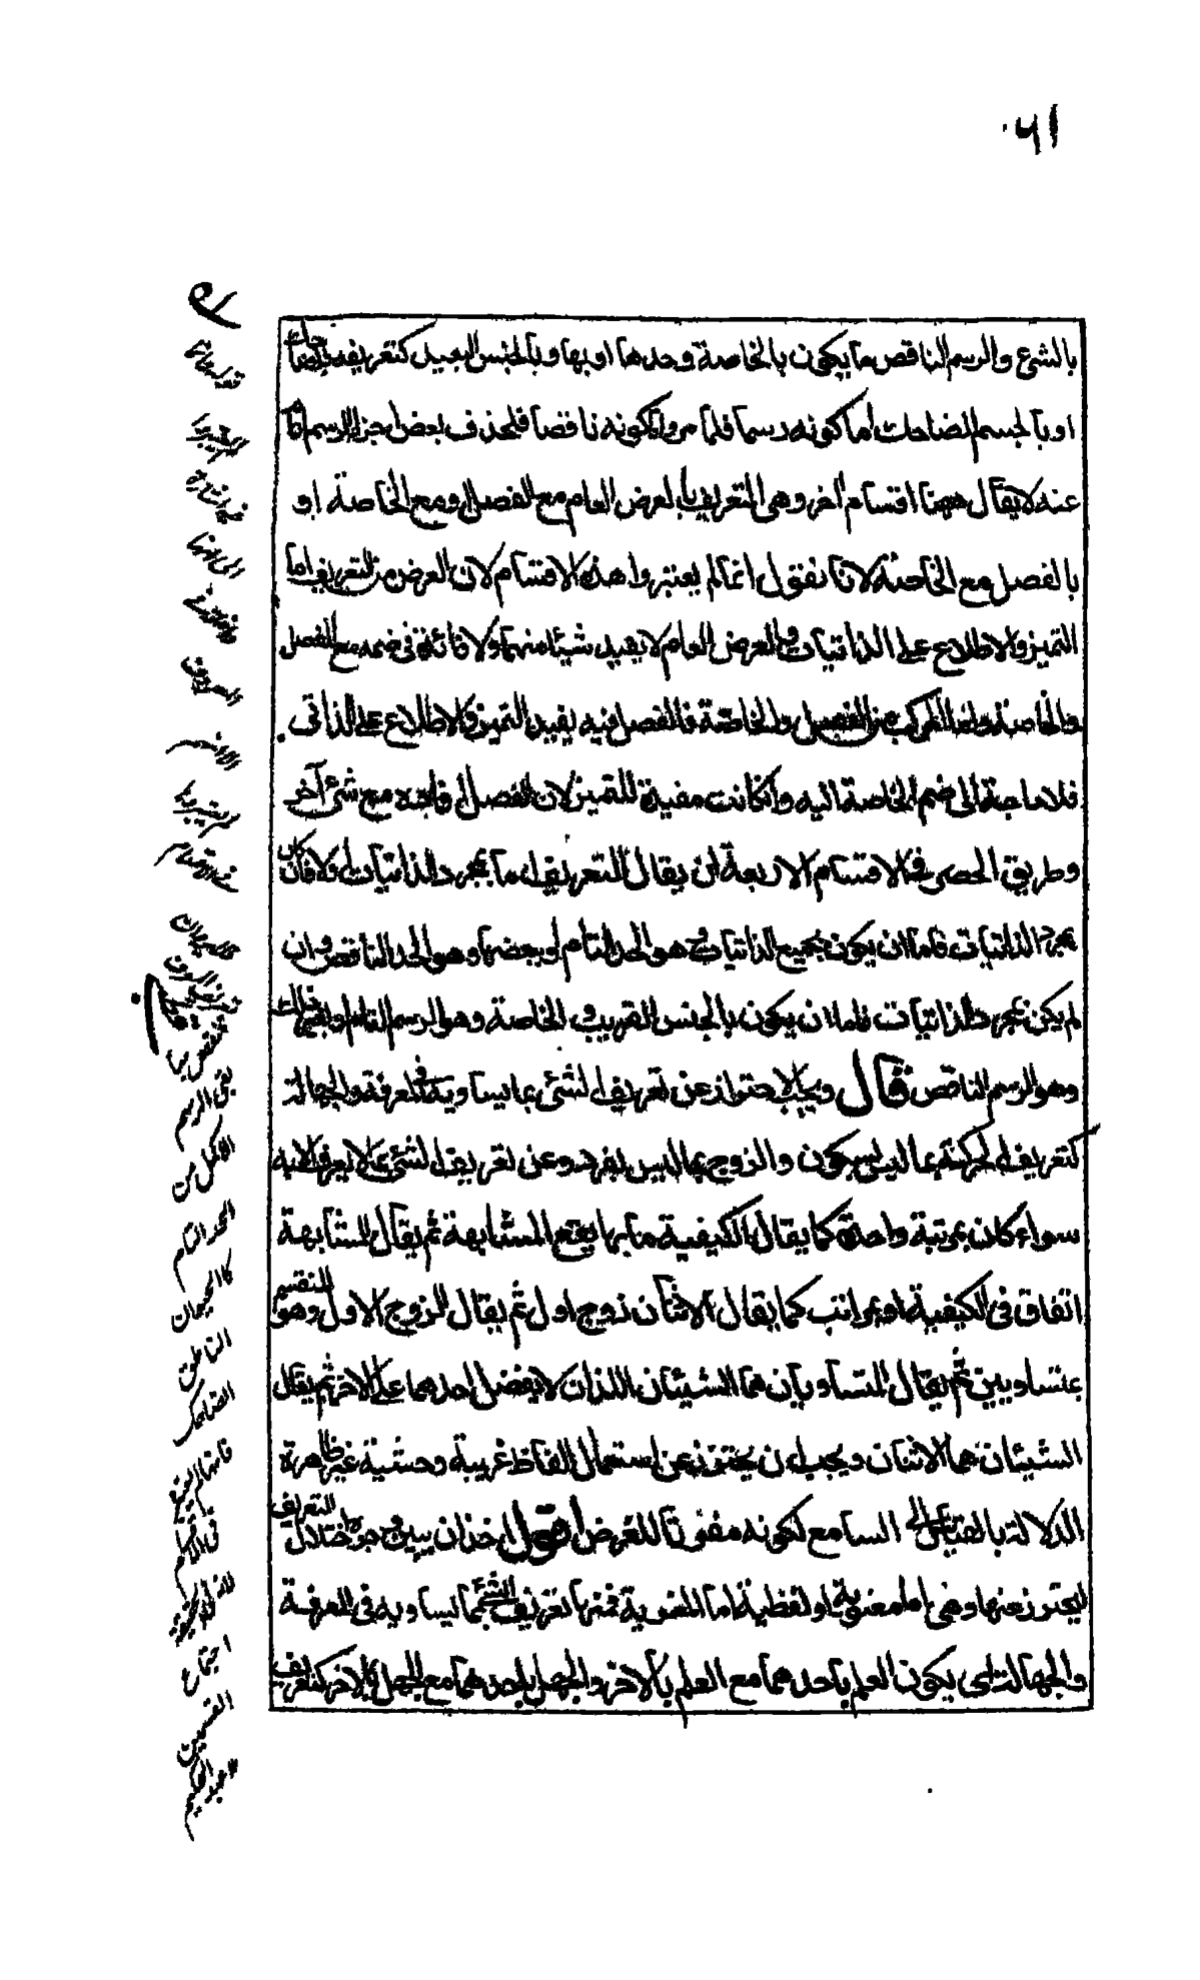 ۶۱
بالشئ والرسم الناقص ما يكون بالخاصة وحدها او بها وبالجنس البعيد كتعريفه بالضاحك
او بالجسم الضاحك اما كونه رسما فلما مر واما كونه ناقصا فلحذف بعض اجزاء الرسم التام
عنه لا يقال ههنا اقسام اخر وهي التعريف بالعرض العام مع الفصل او مع الخاصة او
بالفصل مع الخاصة لانا نقول انما لم يعتبروا هذه الاقسام لان الغرض من التعريف اما
التميز والاطلاع على الذاتيات والعرض العام لا يفيد شيئا منهما ولا فائدة في ضمه مع الفصل
والخاصة واما المركب من الفصل والخاصة فالفصل فيه يفيد التميز والاطلاع على الذاتى
فلا حاجة الى ضم الخاصة اليه وانكانت مفيدة للتميز لان الفصل افاده مع شئ آخر
وطريق الحصر في الاقسام الاربعة ان يقال التعريف اما بمجرد الذاتيات اولا فان كان
بمجرد الذاتيات فاما ان يكون بجميع الذاتيات وهو الحد التام او ببعضها وهو الحد الناقص وان
لم يكن بمجرد الذاتيات فاما ان يكون بالجنس القريب والخاصة وهو الرسم التام او بغير ذلك
وهو الرسم الناقص قال ويجب الاحتراز عن تعريف الشئ بما يساويه في المعرفة والجهالة
كتعريف الحركة بما ليس بسكون والزوج بما ليس بفرد وعن تعريف الشئ بما لا يعرف الا به
سواء كان بمرتبة واحدة كما يقال الكيفية ما بها يقع المشابهة ثم يقال المشابهة
اتفاق في الكيفية او بمراتب كما يقال الاثنان زوج اول ثم يقال الزوج الاول هو المنقسم
بمتساويين ثم يقال المتساويان هما الشيئان اللذان لا يفضل احدهما على الاخر ثم يقال
الشيئان هما الاثنان ويجب ان يحترز عن استعمال الفاظ غريبة وحشية غير ظاهرة
الدلالة بالقياس الى السامع لكونه مفوتا للغرض اقول اخذ ان يبين وجوه اختلال التعريف
ليحترز عنها وهي اما معنوية او لفظية اما المعنوية فمنها تعريف الشئ بما يساويه في المعرفة
والجهالة اى يكون العلم باحدهما مع العلم بالاخر والجهل باحدهما مع الجهل بالاخر كتعريف
بقى الرسم
الاكمل من
الحد التام
كالحيوان
الناطق
الضاحك
اجتماع
القسمين
عبد الحكيم